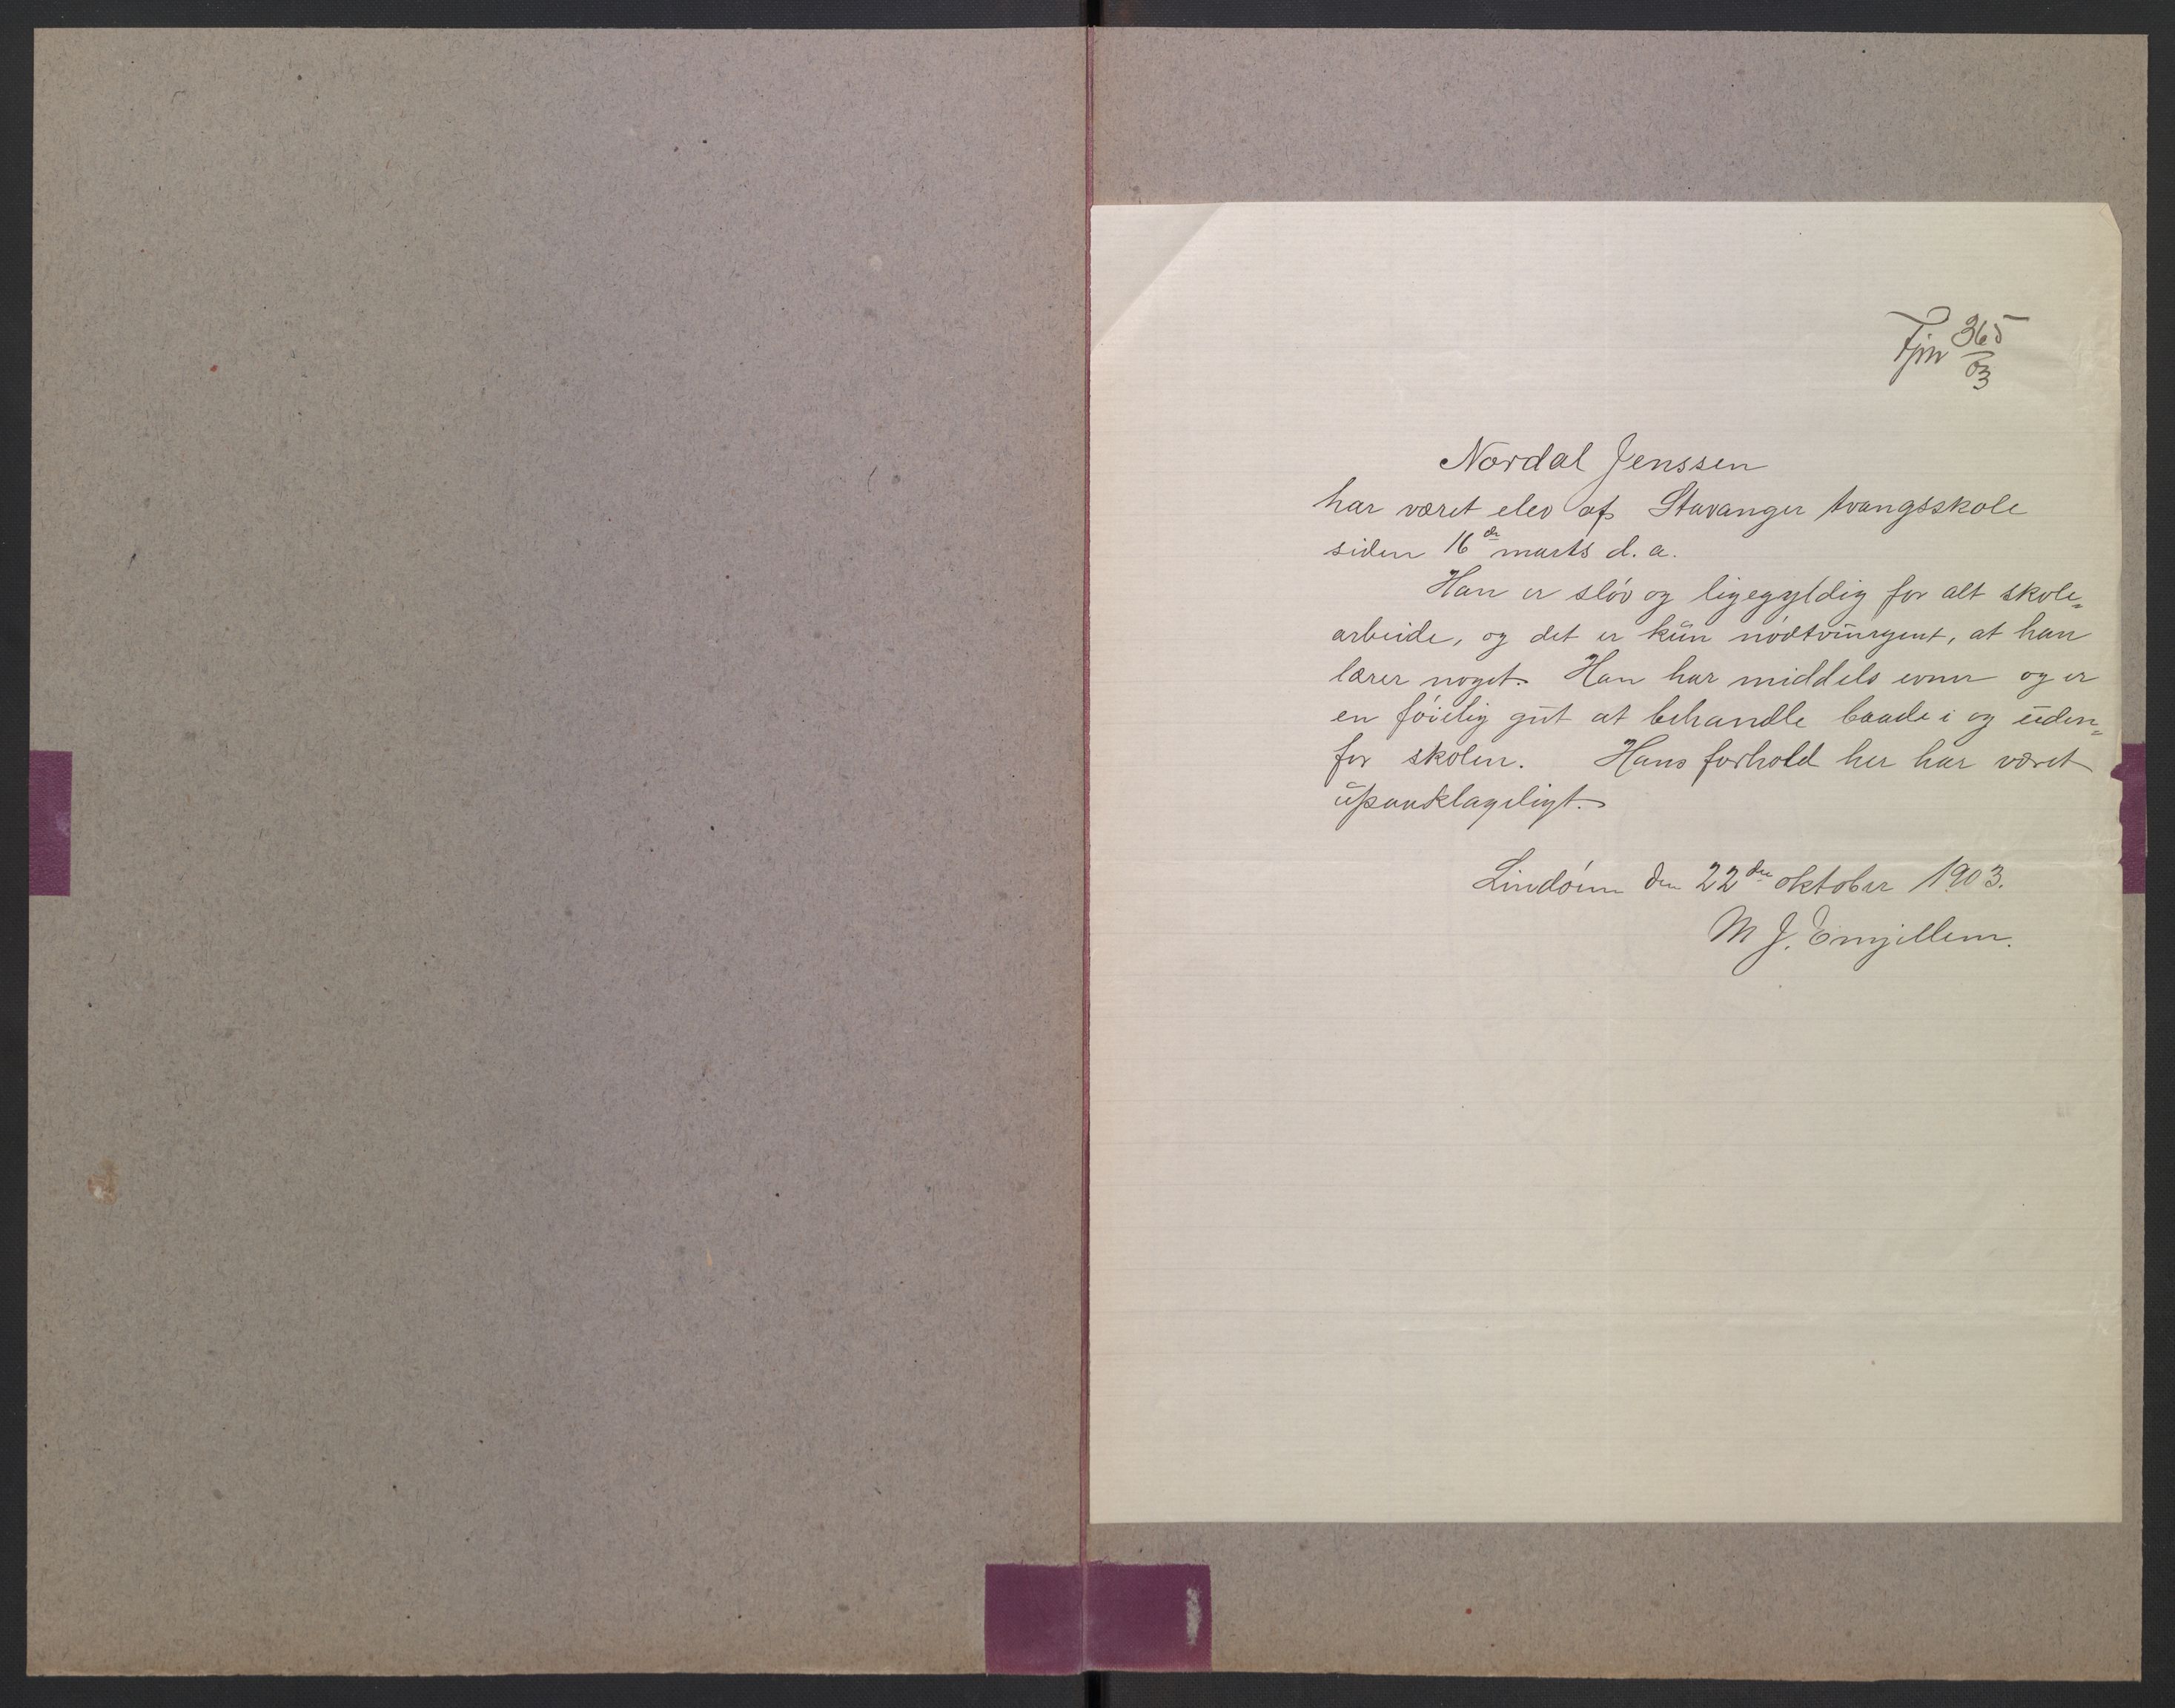 Fjm 365/03
Nordal Jenssen
har været elev af Stavanger tvangsskole
siden 16de marts d. a.
Han er sløv og ligegyldig for alt skole=
arbeide, og det er kun nødtvungent, at han
lærer noget. Han har middels evner og er
en føielig gut at behandle baade i og uden=
for skolen. Hans forhold her har været
upaaklageligt.
Lindøen den 22de oktober 1903.
M J.